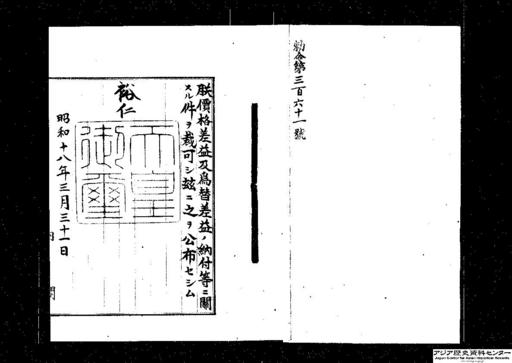 勅令第三百六十一號
朕價格差益及爲替差益ノ納付等ニ關
スル件ヲ裁可シ茲ニ之ヲ公布セシム
裕仁
天皇御璽
昭和十八年三月三十一日
内閣
アジア歴史資料センター
Japan Center for Asian Historical Records